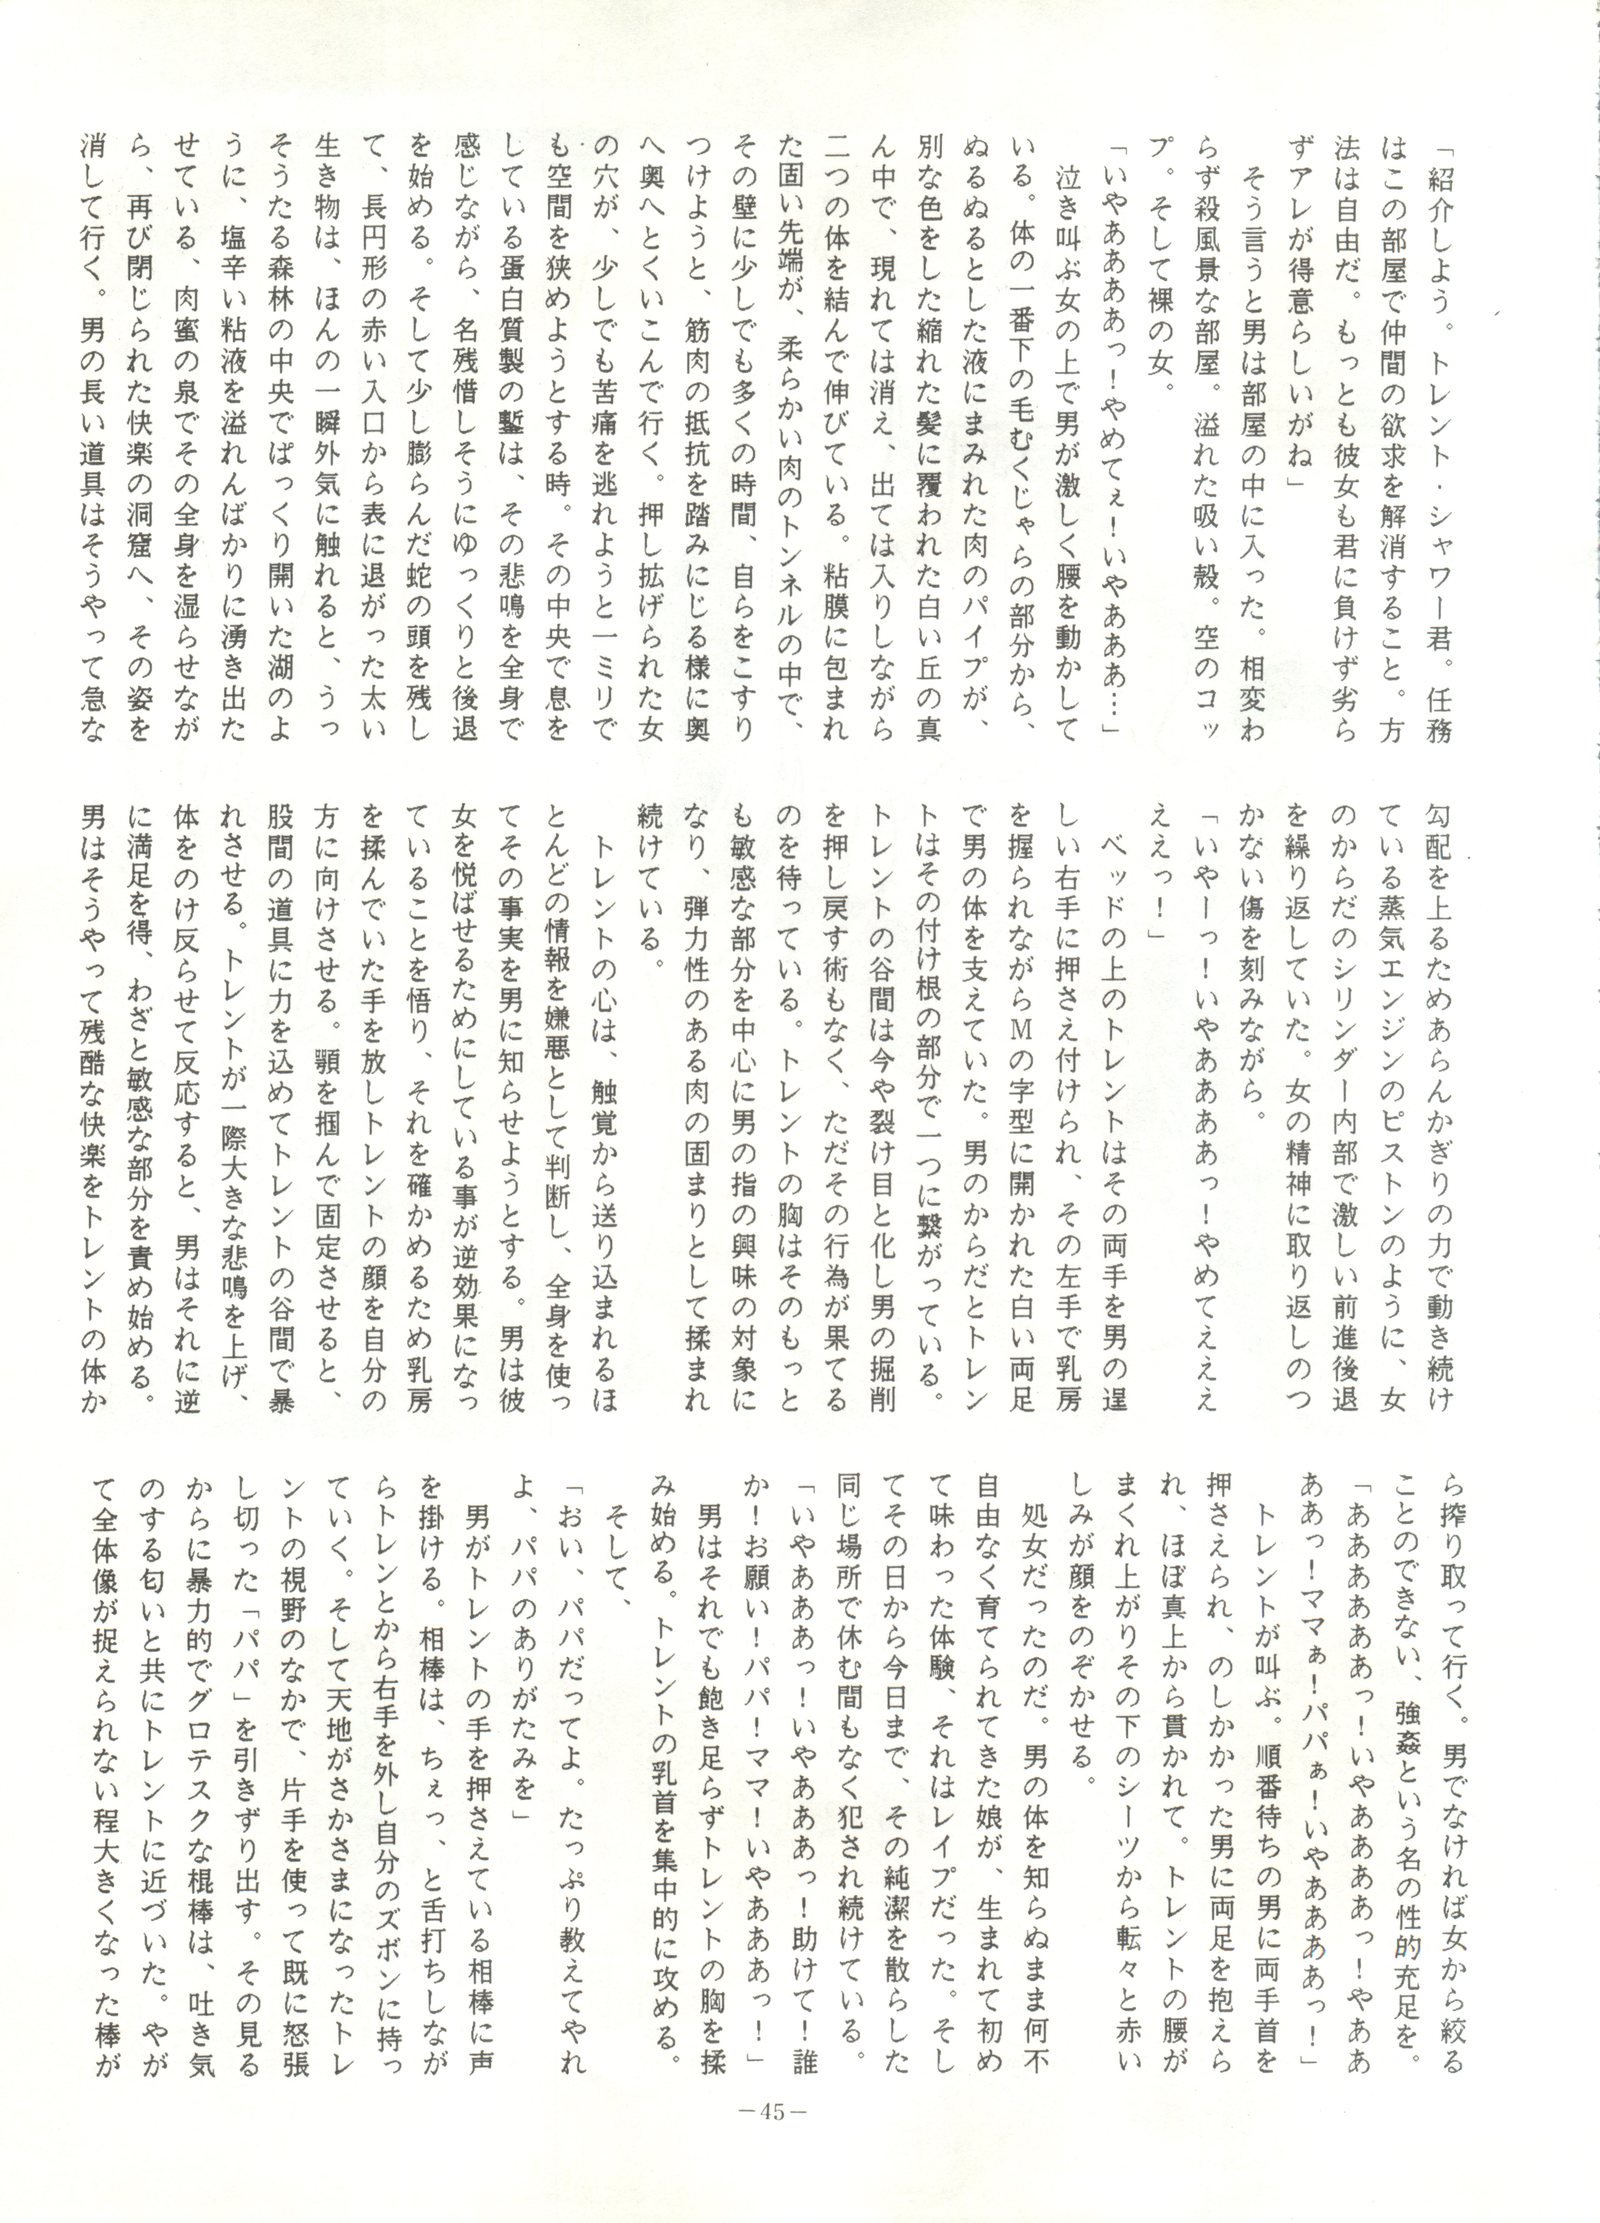 「紹介しよう。トレント・シャワー君。任務
はこの部屋で仲間の欲求を解消すること。方
法は自由だ。もっとも彼女も君に負けず劣ら
ずアレが得意らしいがね」
　そう言うと男は部屋の中に入った。相変わ
らず殺風景な部屋。溢れた吸い殻。空のコッ
プ。そして裸の女。
「いやああああっ！やめてぇ！いやあああ…」
　泣き叫ぶ女の上で男が激しく腰を動かして
いる。体の一番下の毛むくじゃらの部分から、
ぬるぬるとした液にまみれた肉のパイプが、
別な色をした縮れた髪に覆われた白い丘の真
ん中で、現れては消え、出ては入りしながら
二つの体を結んで伸びている。粘膜に包まれ
た固い先端が、柔らかい肉のトンネルの中で、
その壁に少しでも多くの時間、自らをこすり
つけようと、筋肉の抵抗を踏みにじる様に奥
へ奥へとくいこんで行く。押し拡げられた女
の穴が、少しでも苦痛を逃れようと一ミリで
も空間を狭めようとする時。その中央で息を
している蛋白質製の鏨は、その悲鳴を全身で
感じながら、名残惜しそうにゆっくりと後退
を始める。そして少し膨らんだ蛇の頭を残し
て、長円形の赤い入口から表に退がった太い
生き物は、ほんの一瞬外気に触れると、うっ
そうたる森林の中央でぱっくり開いた湖のよ
うに、塩辛い粘液を溢れんばかりに湧き出た
せている、肉蜜の泉でその全身を湿らせなが
ら、再び閉じられた快楽の洞窟へ、その姿を
消して行く。男の長い道具はそうやって急な
勾配を上るためあらんかぎりの力で動き続け
ている蒸気エンジンのピストンのように、女
のからだのシリンダー内部で激しい前進後退
を繰り返していた。女の精神に取り返しのつ
かない傷を刻みながら。
「いやーっ！いやああああっ！やめてえええ
ええっ！」
　ベッドの上のトレントはその両手を男の逞
しい右手に押さえ付けられ、その左手で乳房
を握られながらＭの字型に開かれた白い両足
で男の体を支えていた。男のからだとトレン
トはその付け根の部分で一つに繋がっている。
トレントの谷間は今や裂け目と化し男の掘削
を押し戻す術もなく、ただその行為が果てる
のを待っている。トレントの胸はそのもっと
も敏感な部分を中心に男の指の興味の対象に
なり、弾力性のある肉の固まりとして揉まれ
続けている。
　トレントの心は、触覚から送り込まれるほ
とんどの情報を嫌悪として判断し、全身を使っ
てその事実を男に知らせようとする。男は彼
女を悦ばせるためにしている事が逆効果になっ
ていることを悟り、それを確かめるため乳房
を揉んでいた手を放しトレントの顔を自分の
方に向けさせる。顎を掴んで固定させると、
股間の道具に力を込めてトレントの谷間で暴
れさせる。トレントが一際大きな悲鳴を上げ、
体をのけ反らせて反応すると、男はそれに逆
に満足を得、わざと敏感な部分を責め始める。
男はそうやって残酷な快楽をトレントの体か
ら搾り取って行く。男でなければ女から絞る
ことのできない、強姦という名の性的充足を。
「あああああああっ！いやあああああっ！やああ
ああっ！ママぁ！パパぁ！いやああああっ！」
　トレントが叫ぶ。順番待ちの男に両手首を
押さえられ、のしかかった男に両足を抱えら
れ、ほぼ真上から貫かれて。トレントの腰が
まくれ上がりその下のシーツから転々と赤い
しみが顔をのぞかせる。
　処女だったのだ。男の体を知らぬまま何不
自由なく育てられてきた娘が、生まれて初め
て味わった体験、それはレイプだった。そし
てその日から今日まで、その純潔を散らした
同じ場所で休む間もなく犯され続けている。
「いやあああっ！いやあああっ！助けて！誰
か！お願い！パパ！ママ！いやあああっ！」
　男はそれでも飽き足らずトレントの胸を揉
み始める。トレントの乳首を集中的に攻める。
　そして、
「おい、パパだってよ。たっぷり教えてやれ
よ、パパのありがたみを」
　男がトレントの手を押さえている相棒に声
を掛ける。相棒は、ちぇっ、と舌打ちしなが
らトレンとから右手を外し自分のズボンに持っ
ていく。そして天地がさかさまになったトレ
ントの視野のなかで、片手を使って既に怒張
し切った「パパ」を引きずり出す。その見る
からに暴力的でグロテスクな棍棒は、吐き気
のする匂いと共にトレントに近づいた。やが
て全体像が捉えられない程大きくなった棒が
－45－